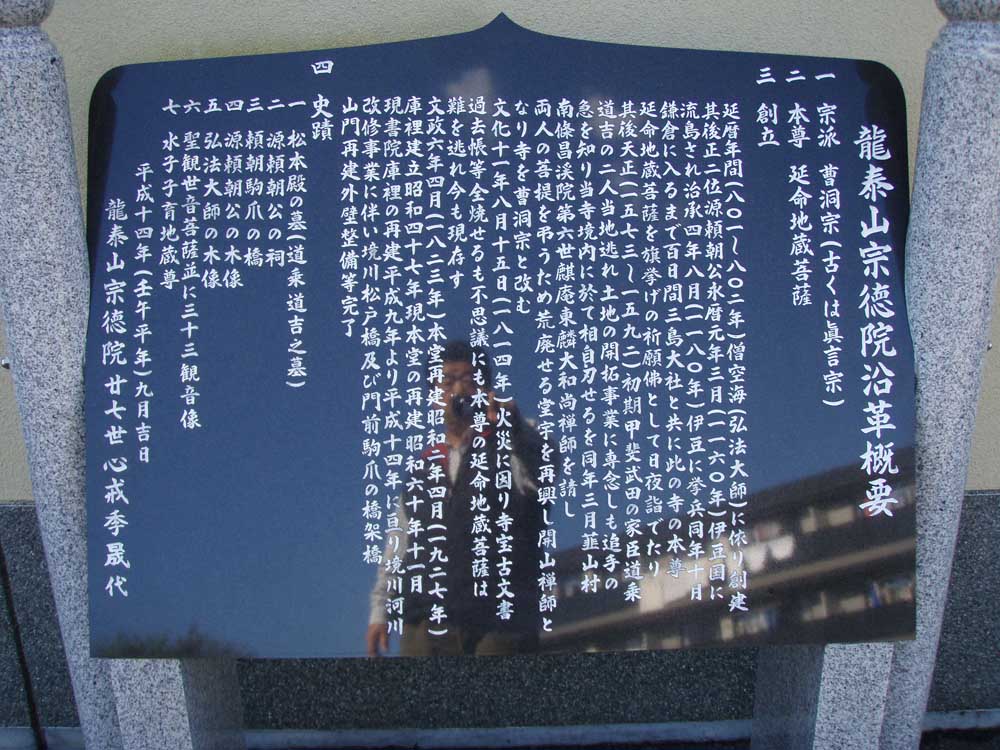 龍泰山宗徳院沿革概要
一 宗派 曹洞宗(古くは眞言宗)
二 本尊 延命地蔵菩薩
三 創立
延暦年間(八〇一～八〇二年)僧空海(弘法大師)に依り創建
其後正二位源頼朝公永暦元年三月(一一六〇年)伊豆国に
流島され治承四年八月(一一八〇年)伊豆に挙兵同年十月
鎌倉に入るまで百日間三島大社と共に此の寺の本尊
延命地蔵菩薩を旗挙げの祈願佛として日夜詣でたり
其後天正(一五七三～一五九二)初期甲斐武田の家臣道乗
道吉の二人当地逃れ土地の開拓事業に専念しも追手の
急を知り当寺境内に於て相自刃せるを同年三月韮山村
南條昌渓院第六世麒庵東麟大和尚禅師を請し
両人の菩提を弔うため荒廃せる堂宇を再興し開山禅師と
なり寺を曹洞宗と改む
文化十一年八月十五日(一八一四年)火災に因り寺宝古文書
過去帳等全焼せるも不思議にも本尊の延命地蔵菩薩は
難を逃れ今も現存す
文政六年四月(一八二三年)本堂再建昭和二年四月(一九二七年)
庫裡建立昭和四十七年現本堂の再建昭和六十年十一月
現書院庫裡の再建平成九年より平成十四年に亘り境川河川
改修事業に伴い境川松戸橋及び門前駒爪の橋架橋
山門再建外壁整備等完了
四 史蹟
一 松本殿の墓(道乗道吉之墓)
二 源頼朝公の祠
三 頼朝駒爪の橋
四 源頼朝公の木像
五 弘法大師の木像
六 聖観世音菩薩並に三十三観音像
七 水子子育地蔵尊
平成十四年(壬午平年)九月吉日
龍泰山宗徳院廿七世心戒季晟代